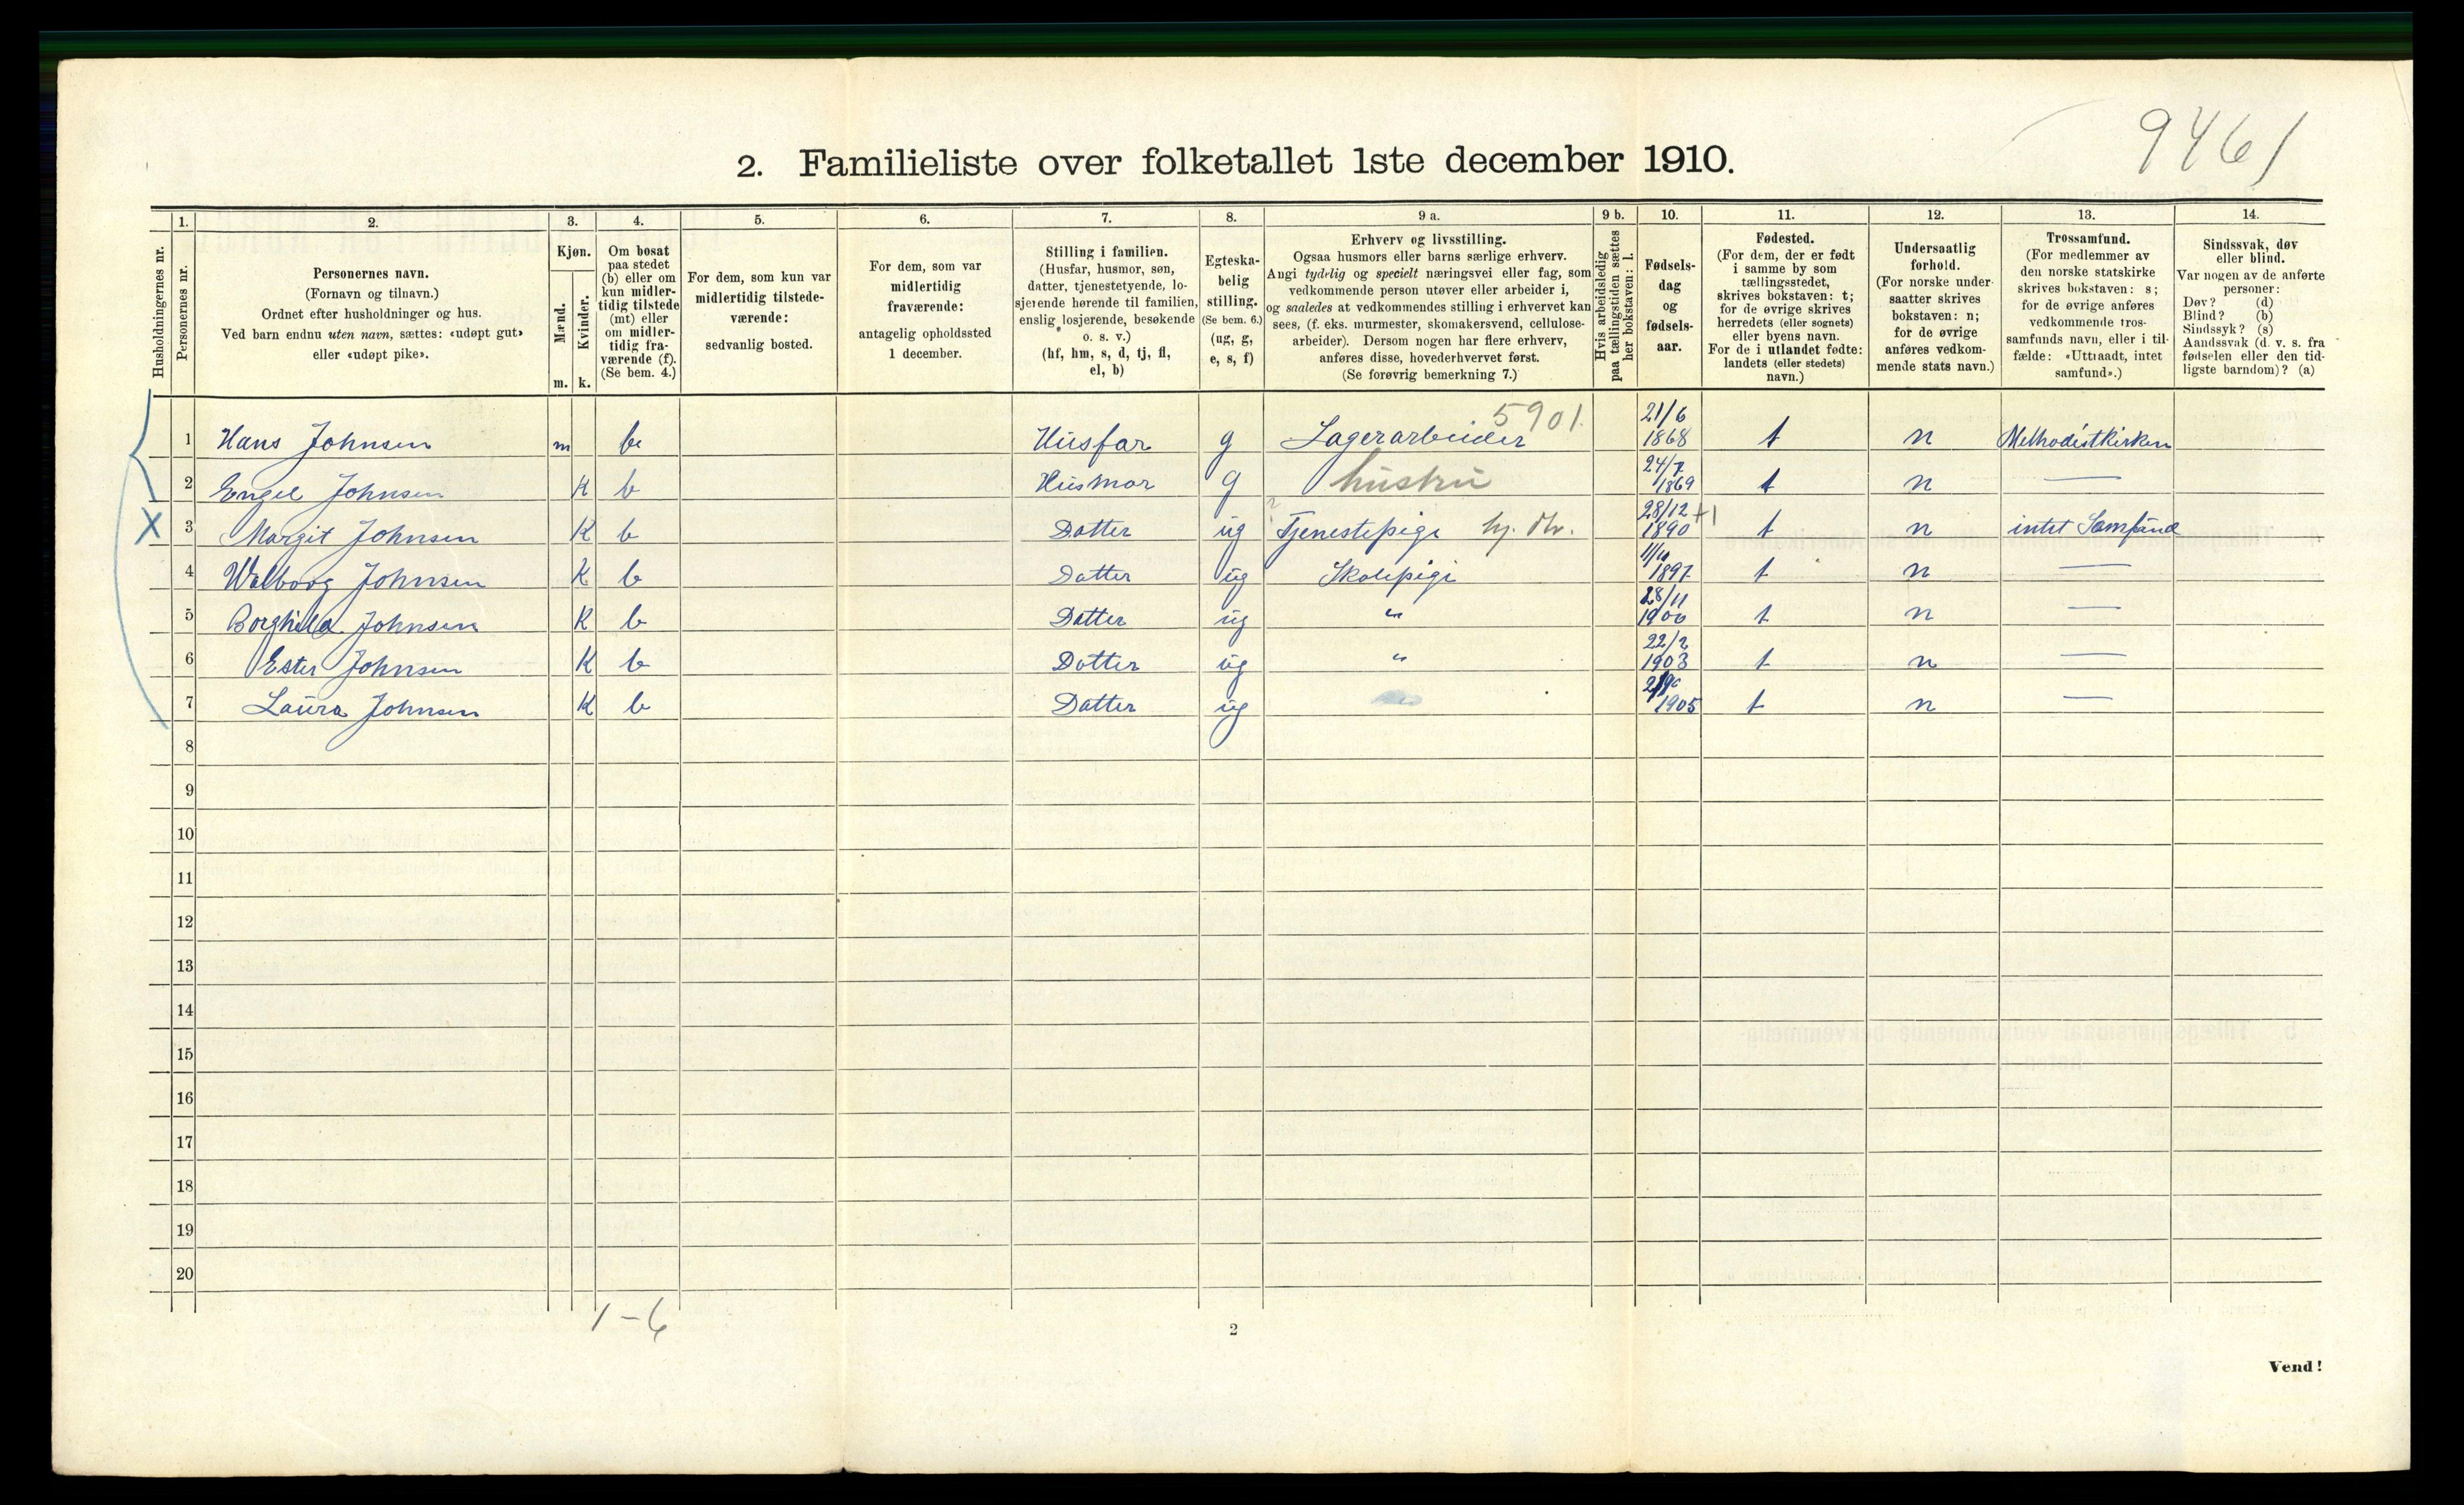 9461
2. Familieliste over folketallet 1ste december 1910.
Husholdningernes nr.
1.
Personernes nr.
2.
Personernes navn.
(Fornavn og tilnavn.)
Ordnet efter husholdninger og hus.
Ved barn endnu uten navn, sættes: «udøpt gut»
eller «udøpt pike».
3.
Kjøn.
Mænd.
Kvinder.
m. k.
4.
Om bosat
paa stedet
(b) eller om
kun midler-
tidig tilstede
(mt) eller
om midler-
tidig fra-
værende (f).
(Se bem. 4.)
5.
For dem, som kun var
midlertidig tilstede-
værende:
sedvanlig bosted.
6.
For dem, som var
midlertidig
fraværende:
antagelig opholdssted
1 december.
7.
Stilling i familien.
(Husfar, husmor, søn,
datter, tjenestetyende, lo-
sjerende hørende til familien,
enslig losjerende, besøkende
o. s. v.)
(hf, hm, s, d, tj, fl,
el, b)
8.
Egteska-
belig
stilling.
(Se bem. 6.)
(ug, g,
e, s, f)
9 a.
Erhverv og livsstilling.
Ogsaa husmors eller barns særlige erhverv.
Angi tydelig og specielt næringsvei eller fag, som
vedkommende person utøver eller arbeider i,
og saaledes at vedkommendes stilling i erhvervet kan
sees, (f. eks. murmester, skomakersvend, cellulose-
arbeider). Dersom nogen har flere erhverv,
anføres disse, hovederhvervet først.
(Se forøvrig bemerkning 7.)
9 b.
Hvis arbeidsledig
paa tællingstiden sættes
her bokstaven: l.
10.
Fødsels-
dag
og
fødsels-
aar.
11.
Fødested.
(For dem, der er født
i samme by som
tællingsstedet,
skrives bokstaven: t;
for de øvrige skrives
herredets (eller sognets)
eller byens navn.
For de i utlandet fødte:
landets (eller stedets)
navn.)
12.
Undersaatlig
forhold.
(For norske under-
saatter skrives
bokstaven: n;
for de øvrige
anføres vedkom-
mende stats navn.)
13.
Trossamfund.
(For medlemmer av
den norske statskirke
skrives bokstaven: s;
for de øvrige anføres
vedkommende tros-
samfunds navn, eller i til-
fælde: «Uttraadt, intet
samfund».)
14.
Sindssvak, døv
eller blind.
Var nogen av de anførte
personer:
Døv? (d)
Blind? (b)
Sindssyk? (s)
Aandssvak (d. v. s. fra
fødselen eller den tid-
ligste barndom)? (a)
5901.
1 Hans Johnsen m b Husfar g Lagerarbeider 21/6 1868 t n Methodistkirken
2 Engel Johnsen K b Husmor g hustru 24/7 1869 t n —
X 3 Margit Johnsen K b Datter ug Tjenestepige hj. dtr. 28/12 1890 +1 t n intet Samfund
4 Walborg Johnsen K b Datter ug Skolepige 11/10 1897 t n —
5 Borghild Johnsen K b Datter ug " 28/11 1900 t n —
6 Ester Johnsen K b Datter ug " 22/2 1903 t n —
7 Laura Johnsen K b Datter ug 1905 t n —
8
9
10
11
12
13
14
15
16
17
18
19
20
1-6
2
Vend!